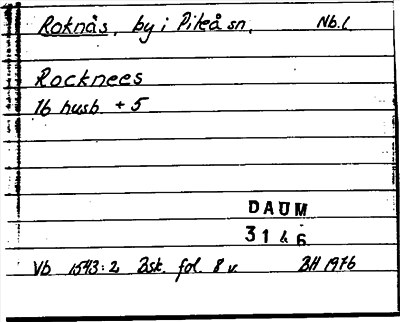 Roknäs, by i Piteå sn. Nb.l.
Rocknees
16 husb. + 5
DAUM
3146
Vb 1543:2 Bsk. fol. 8 v. BH 1976